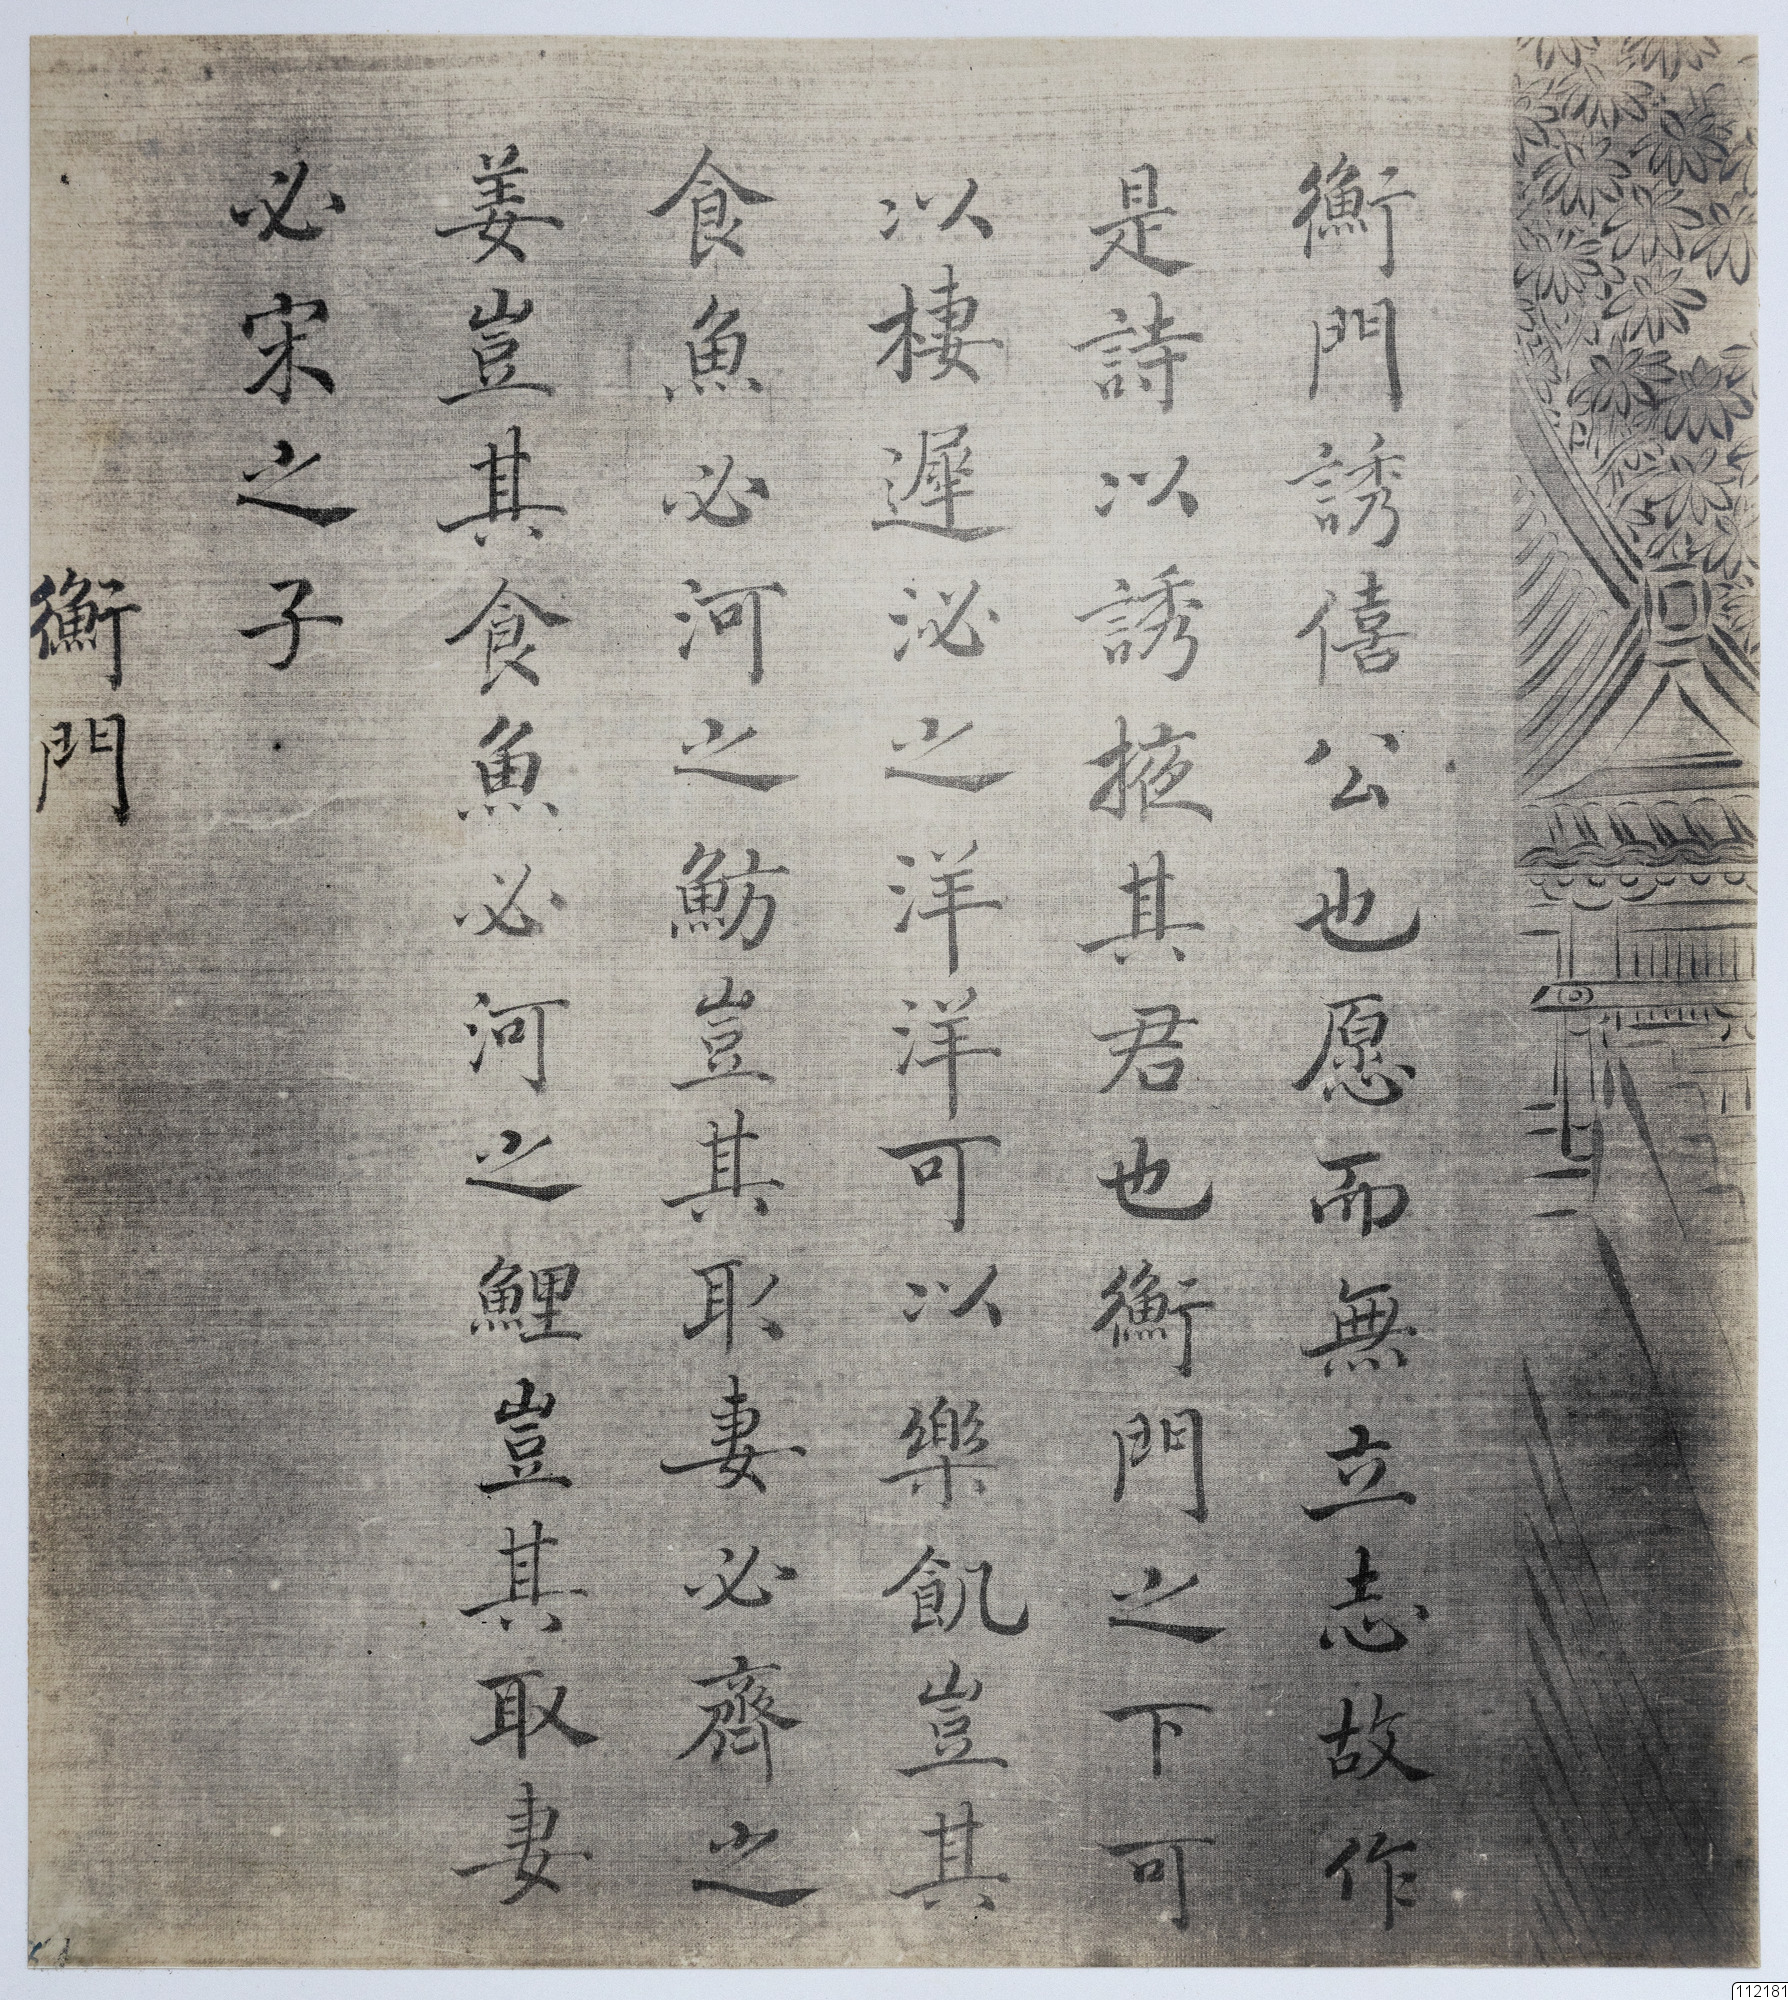 衡門誘僖公也愿而無立志故作
是詩以誘掖其君也衡門之下可
以棲遲泌之洋洋可以樂飢豈其
食魚必河之魴豈其取妻必齊之
姜豈其食魚必河之鯉豈其取妻
必宋之子
衡門
112181